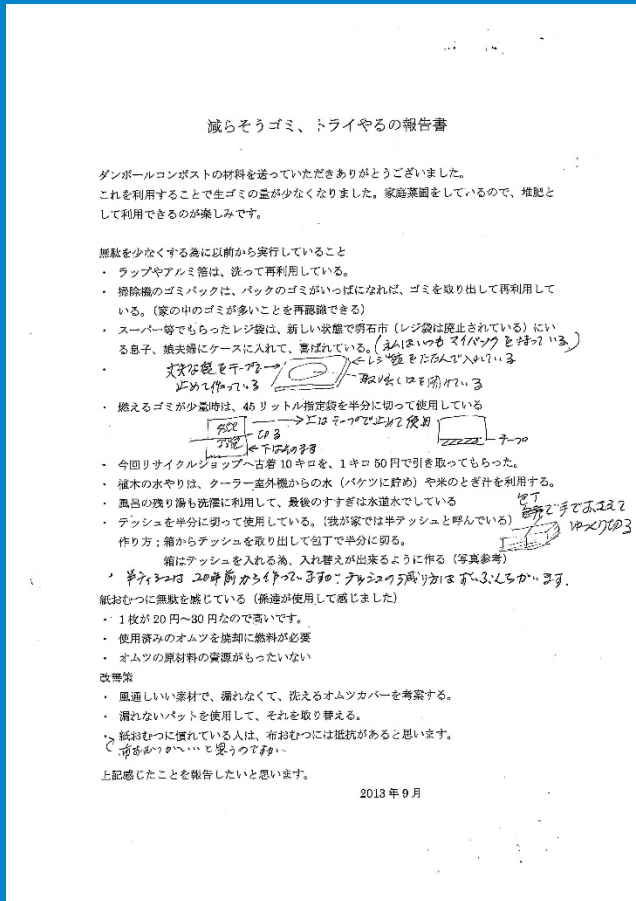 減らそうゴミ、トライやるの報告書
ダンボールコンポストの材料を送っていただきありがとうございました。
これを利用することで生ゴミの量が少なくなりました。家庭菜園をしているので、堆肥と
して利用できるのが楽しみです。
無駄を少なくする為に以前から実行していること
・ ラップやアルミ箔は、洗って再利用している。
・ 掃除機のゴミパックは、パックのゴミがいっぱいになれば、ゴミを取り出して再利用して
いる。(家の中のゴミが多いことを再認識できる)
・ スーパー等でもらったレジ袋は、新しい状態で明石市(レジ袋は廃止されている)にい
る息子、娘夫婦にケースに入れて、喜ばれている。(私はいつもマイバックを持っている)
・ 丈夫な箱をテープで
止めて作っている
レジ袋をたたんで入れている
取り出し口を開けている
・ 燃えるゴミが少量時は、45リットル指定袋を半分に切って使用している
切る
上はテープで止めて使用
下はそのまま
テープ
・ 今回リサイクルショップへ古着10キロを、1キロ50円で引き取ってもらった。
・ 植木の水やりは、クーラー室外機からの水(バケツに貯め)や米のとぎ汁を利用する。
・ 風呂の残り湯も洗濯に利用して、最後のすすぎは水道水でしている
・ テッシュを半分に切って使用している。(我が家では半テッシュと呼んでいる)
包丁
で手でおさえて
ゆっくり切る
作り方;箱からテッシュを取り出して包丁で半分に切る。
箱はテッシュを入れる為、入れ替えが出来るように作る(写真参考)
・ 半ティシュは20年前から作っていますが、テッシュの減り方はずいぶんちがいます。
紙おむつに無駄を感じている(孫達が使用して感じました)
・ 1枚が20円~30円なので高いです。
・ 使用済みのオムツを焼却に燃料が必要
・ オムツの原材料の資源がもったいない
改善策
・ 風通しいい素材で、漏れなくて、洗えるオムツカバーを考案する。
・ 漏れないパットを使用して、それを取り替える。
・ 紙おむつに慣れている人は、布おむつには抵抗があると思います。
布おむつがいいと思うのですが…
上記感じたことを報告したいと思います。
2013年9月